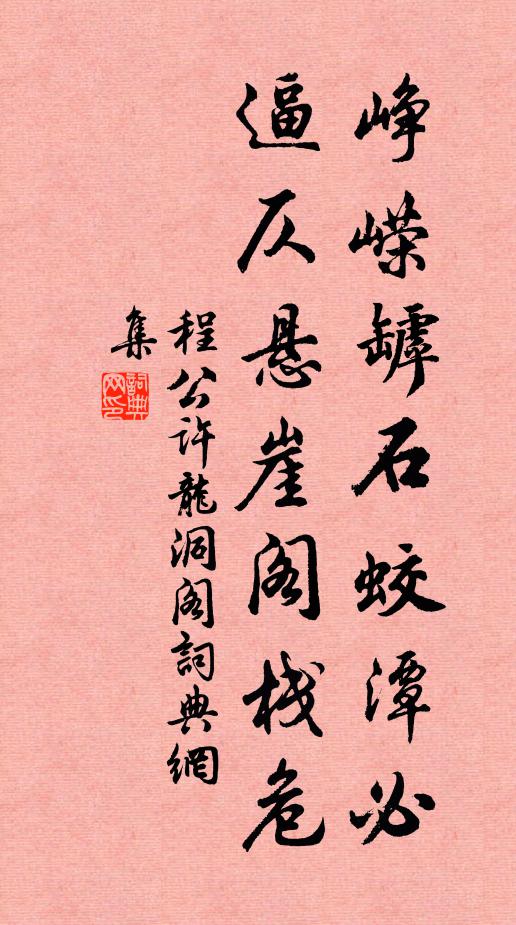 峥嵘罅石蛟潭必
逼仄悬崖阁栈危
程公许龍洞阁詞典網
集
詞典网印